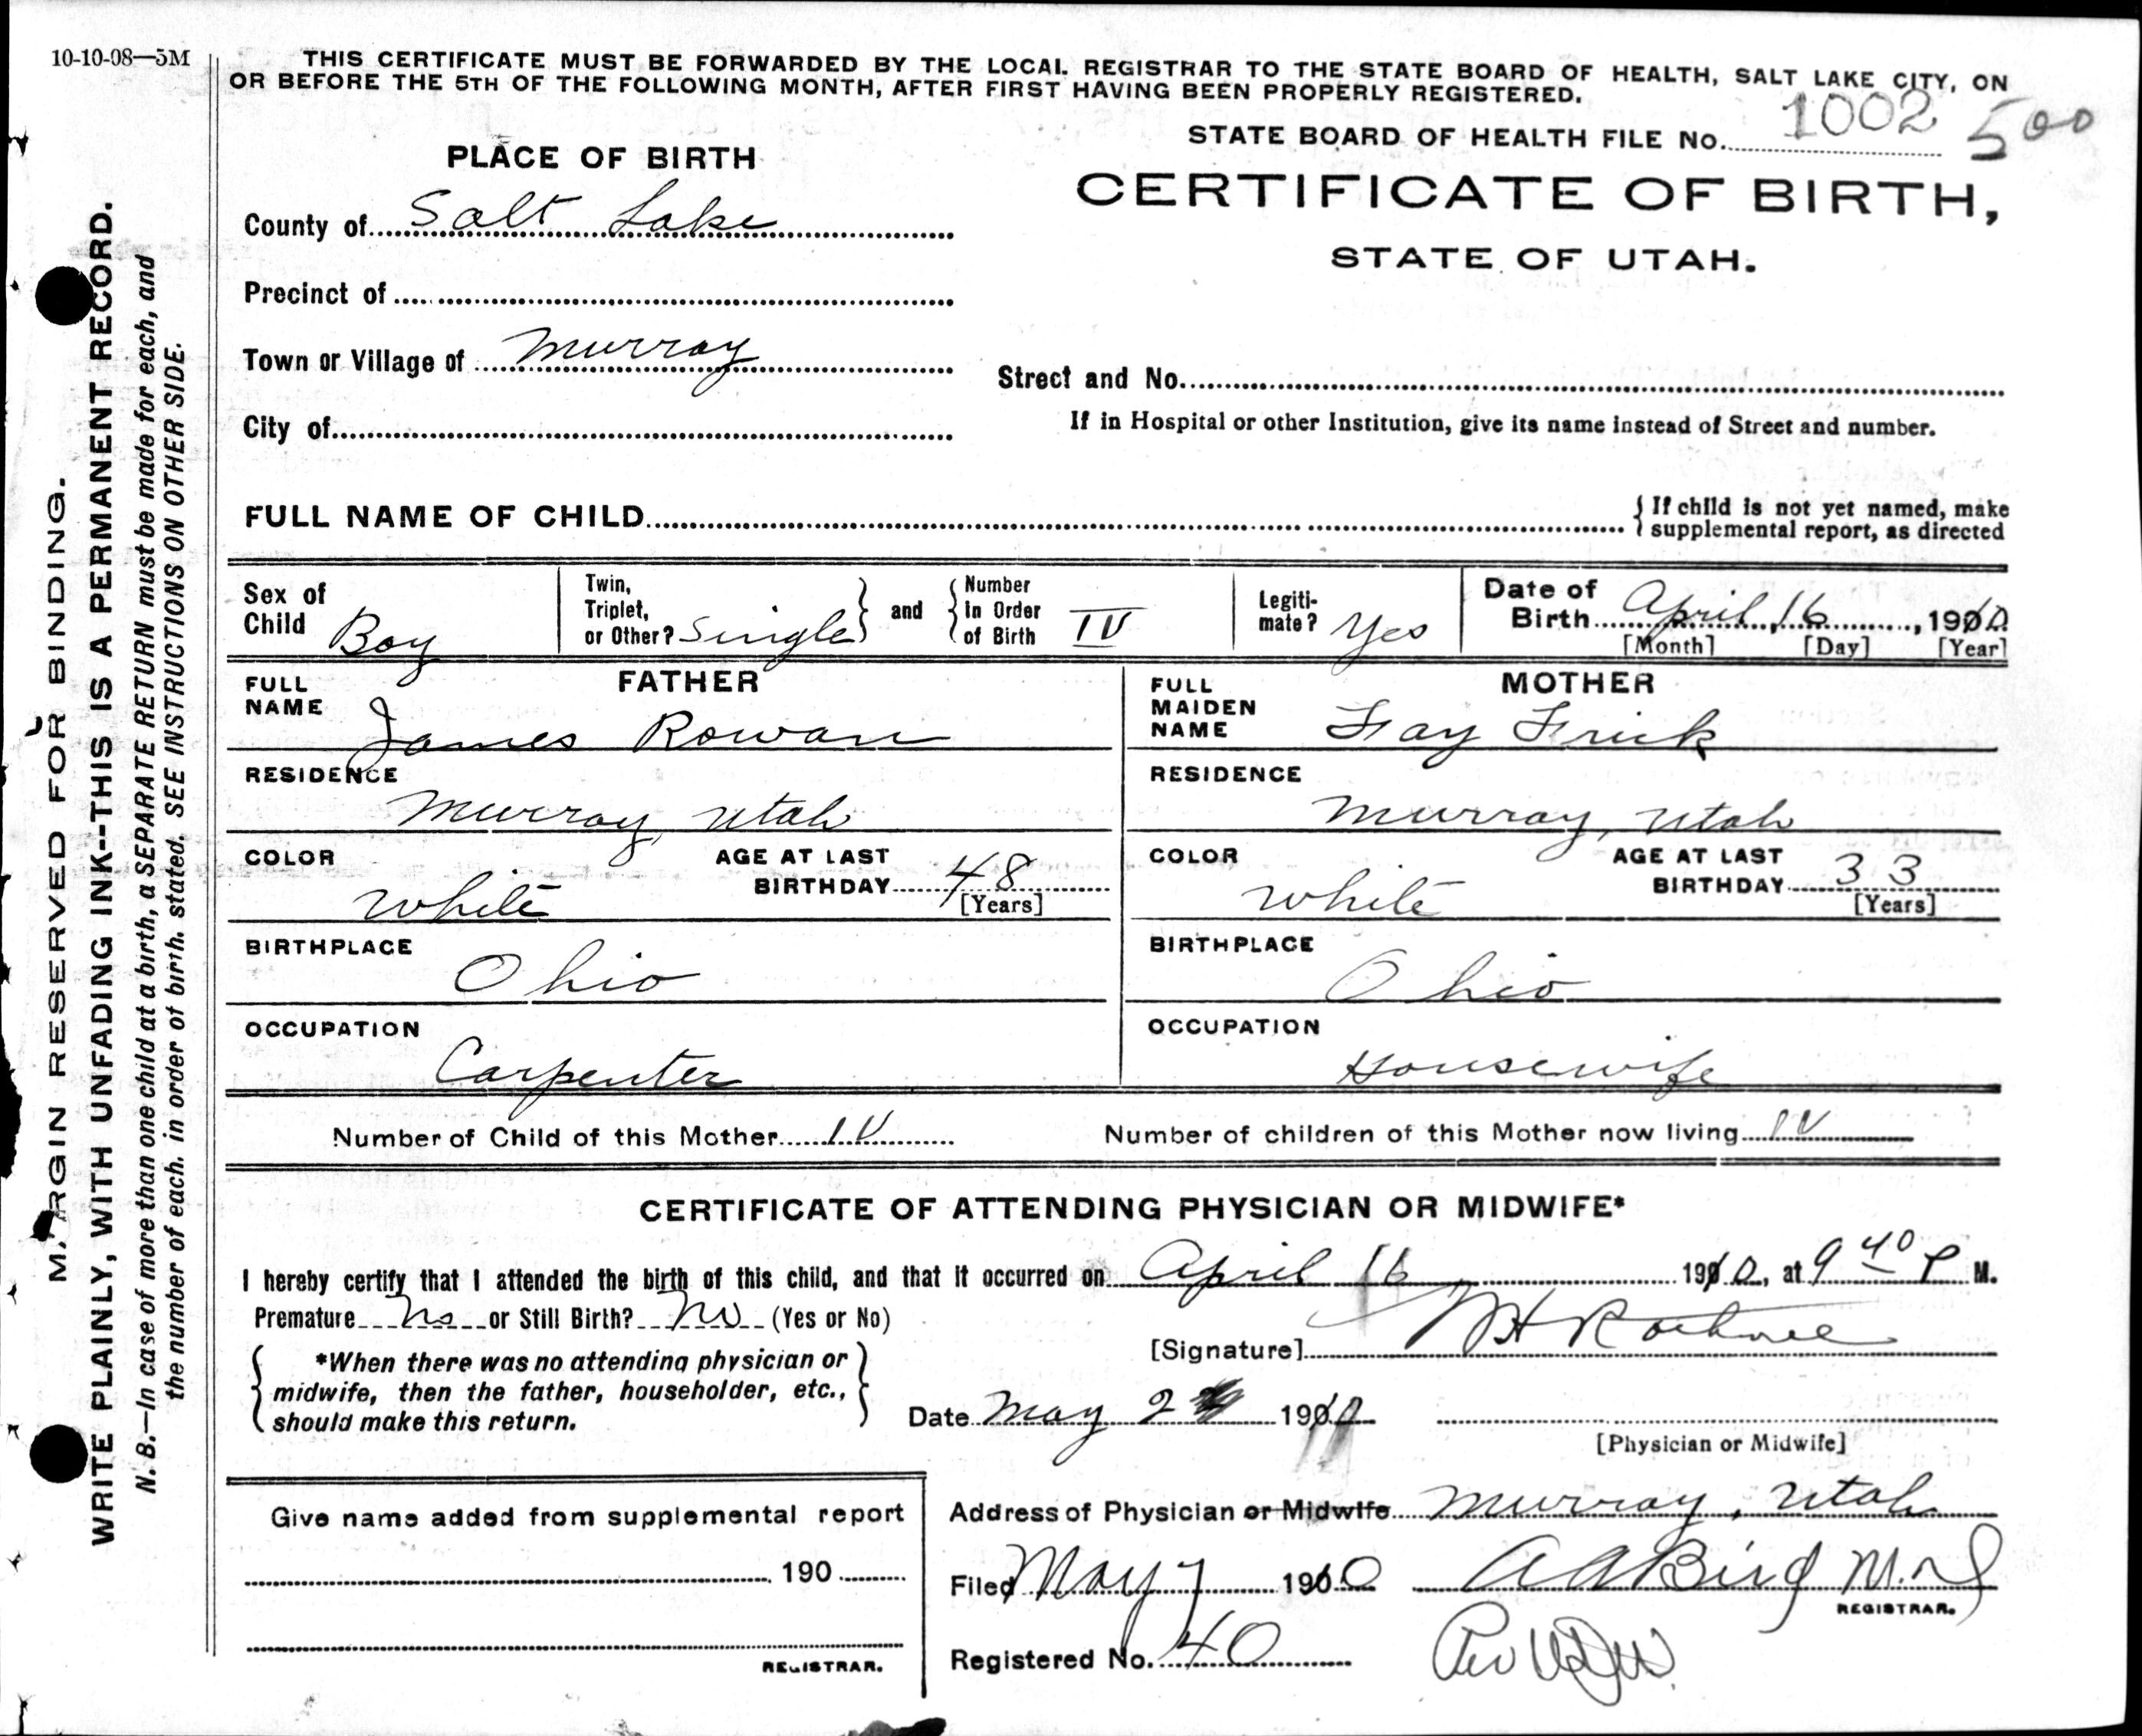 10-10-08—5M
THIS CERTIFICATE MUST BE FORWARDED BY THE LOCAL REGISTRAR TO THE STATE BOARD OF HEALTH, SALT LAKE CITY, ON
OR BEFORE THE 5TH OF THE FOLLOWING MONTH, AFTER FIRST HAVING BEEN PROPERLY REGISTERED.
STATE BOARD OF HEALTH FILE No. 1002 500
PLACE OF BIRTH
CERTIFICATE OF BIRTH,
STATE OF UTAH.
County of Salt Lake
Precinct of
Town or Village of Murray
Street and No.
City of
If in Hospital or other Institution, give its name instead of Street and number.
FULL NAME OF CHILD
{ If child is not yet named, make
supplemental report, as directed
Sex of Child Boy
Twin, Triplet, or Other? Single } and { Number in Order of Birth IV
Legiti-mate? Yes
Date of Birth April 16, 1910
[Month] [Day] [Year]
FATHER
FULL NAME James Rowan
RESIDENCE
Murray, Utah
COLOR White
AGE AT LAST BIRTHDAY 48
[Years]
BIRTHPLACE
Ohio
OCCUPATION
Carpenter
MOTHER
FULL MAIDEN NAME Fay Frick
RESIDENCE
Murray, Utah
COLOR White
AGE AT LAST BIRTHDAY 33
[Years]
BIRTHPLACE
Ohio
OCCUPATION
Housewife
Number of Child of this Mother IV
Number of children of this Mother now living IV
CERTIFICATE OF ATTENDING PHYSICIAN OR MIDWIFE*
I hereby certify that I attended the birth of this child, and that it occurred on April 16 1910, at 9 40 P M.
Premature No or Still Birth? No (Yes or No)
[Signature] H
{ *When there was no attending physician or
midwife, then the father, householder, etc.,
should make this return. }
Date May 2 1910
[Physician or Midwife]
Give name added from supplemental report
190
REGISTRAR.
Address of Physician or Midwife Murray, Utah
Filed May 7 1910 A A Bird M.D
REGISTRAR.
Registered No. 40
MARGIN RESERVED FOR BINDING.
WRITE PLAINLY, WITH UNFADING INK--THIS IS A PERMANENT RECORD.
N. B.—In case of more than one child at a birth, a SEPARATE RETURN must be made for each, and
the number of each, in order of birth, stated. SEE INSTRUCTIONS ON OTHER SIDE.